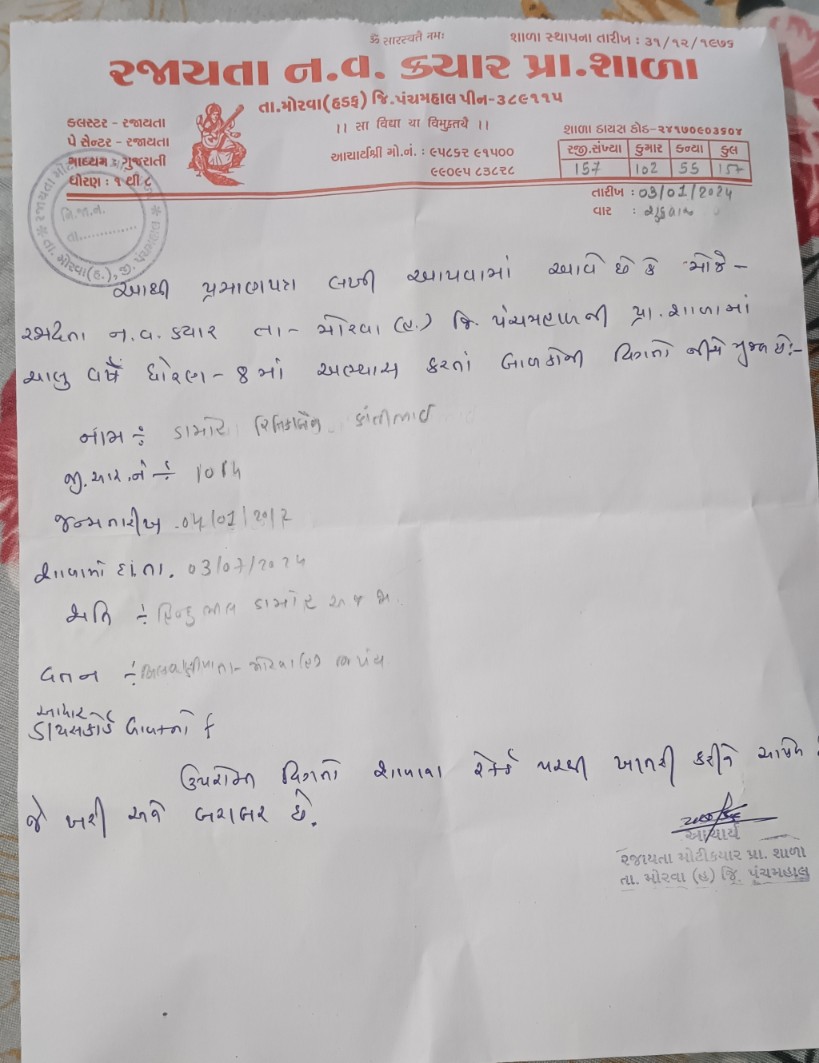 ૐ સારસ્વતૈ નમઃ
શાળા સ્થાપના તારીખ : ૩૧/૧૨/૧૯૭૬
રજાયતા ન.વ. ક્યાર પ્રા.શાળા
તા.મોરવા(હડફ) જિ.પંચમહાલ પીન-૩૮૯૧૧૫
કલસ્ટર - રજાયતા
પે સેન્ટર - રજાયતા
માધ્યમ : ગુજરાતી
ધોરણ : ૧ થી ૮
।। સા વિદ્યા યા વિમુક્તયે ।।
આચાર્યશ્રી મો.નં. : ૯૫૮૬૨ ૯૧૫૦૦
૯૯૦૯૫ ૮૩૮૨૮
શાળા ડાયસ કોડ-૨૪૧૭૦૯૦૩૬૦૪
રજી.સંખ્યા કુમાર કન્યા કુલ
157 102 55 157
તારીખ : 03/01/2024
વાર : શુક્રવાર
મિ.જા.નં.
તા..............
આથી પ્રમાણપત્ર લખી આપવામાં આવે છે કે મોજે -
ન.વ. ક્યાર તા- મોરવા (હ.) જિ. પંચમહાલની પ્રા. શાળામાં
ચાલુ વર્ષે ધોરણ - 8 માં અભ્યાસ કરતાં બાળકોની વિગતો નીચે મુજબ છે:-
નામ ÷ ડામોર કાંતીભાઈ
જી.આર.નં ÷
જન્મતારીખ . 04/01/2012
શાળામાં દા.તા. 03/07/2024
જાતિ ÷ હિન્દુ ડામોર અ જ જા
વતન ÷ મોરવા(હ) પંચ
આધાર
ડાયસકોર્ડ બાબતનો
ઉપરોક્ત વિગતો શાળાના રેકર્ડ પરથી ખાતરી કરીને આપેલ
જે ખરી અને બરાબર છે.
આચાર્ય
રજાયતા મોટીકયાર પ્રા. શાળા
તા. મોરવા (હ) જિ. પંચમહાલ